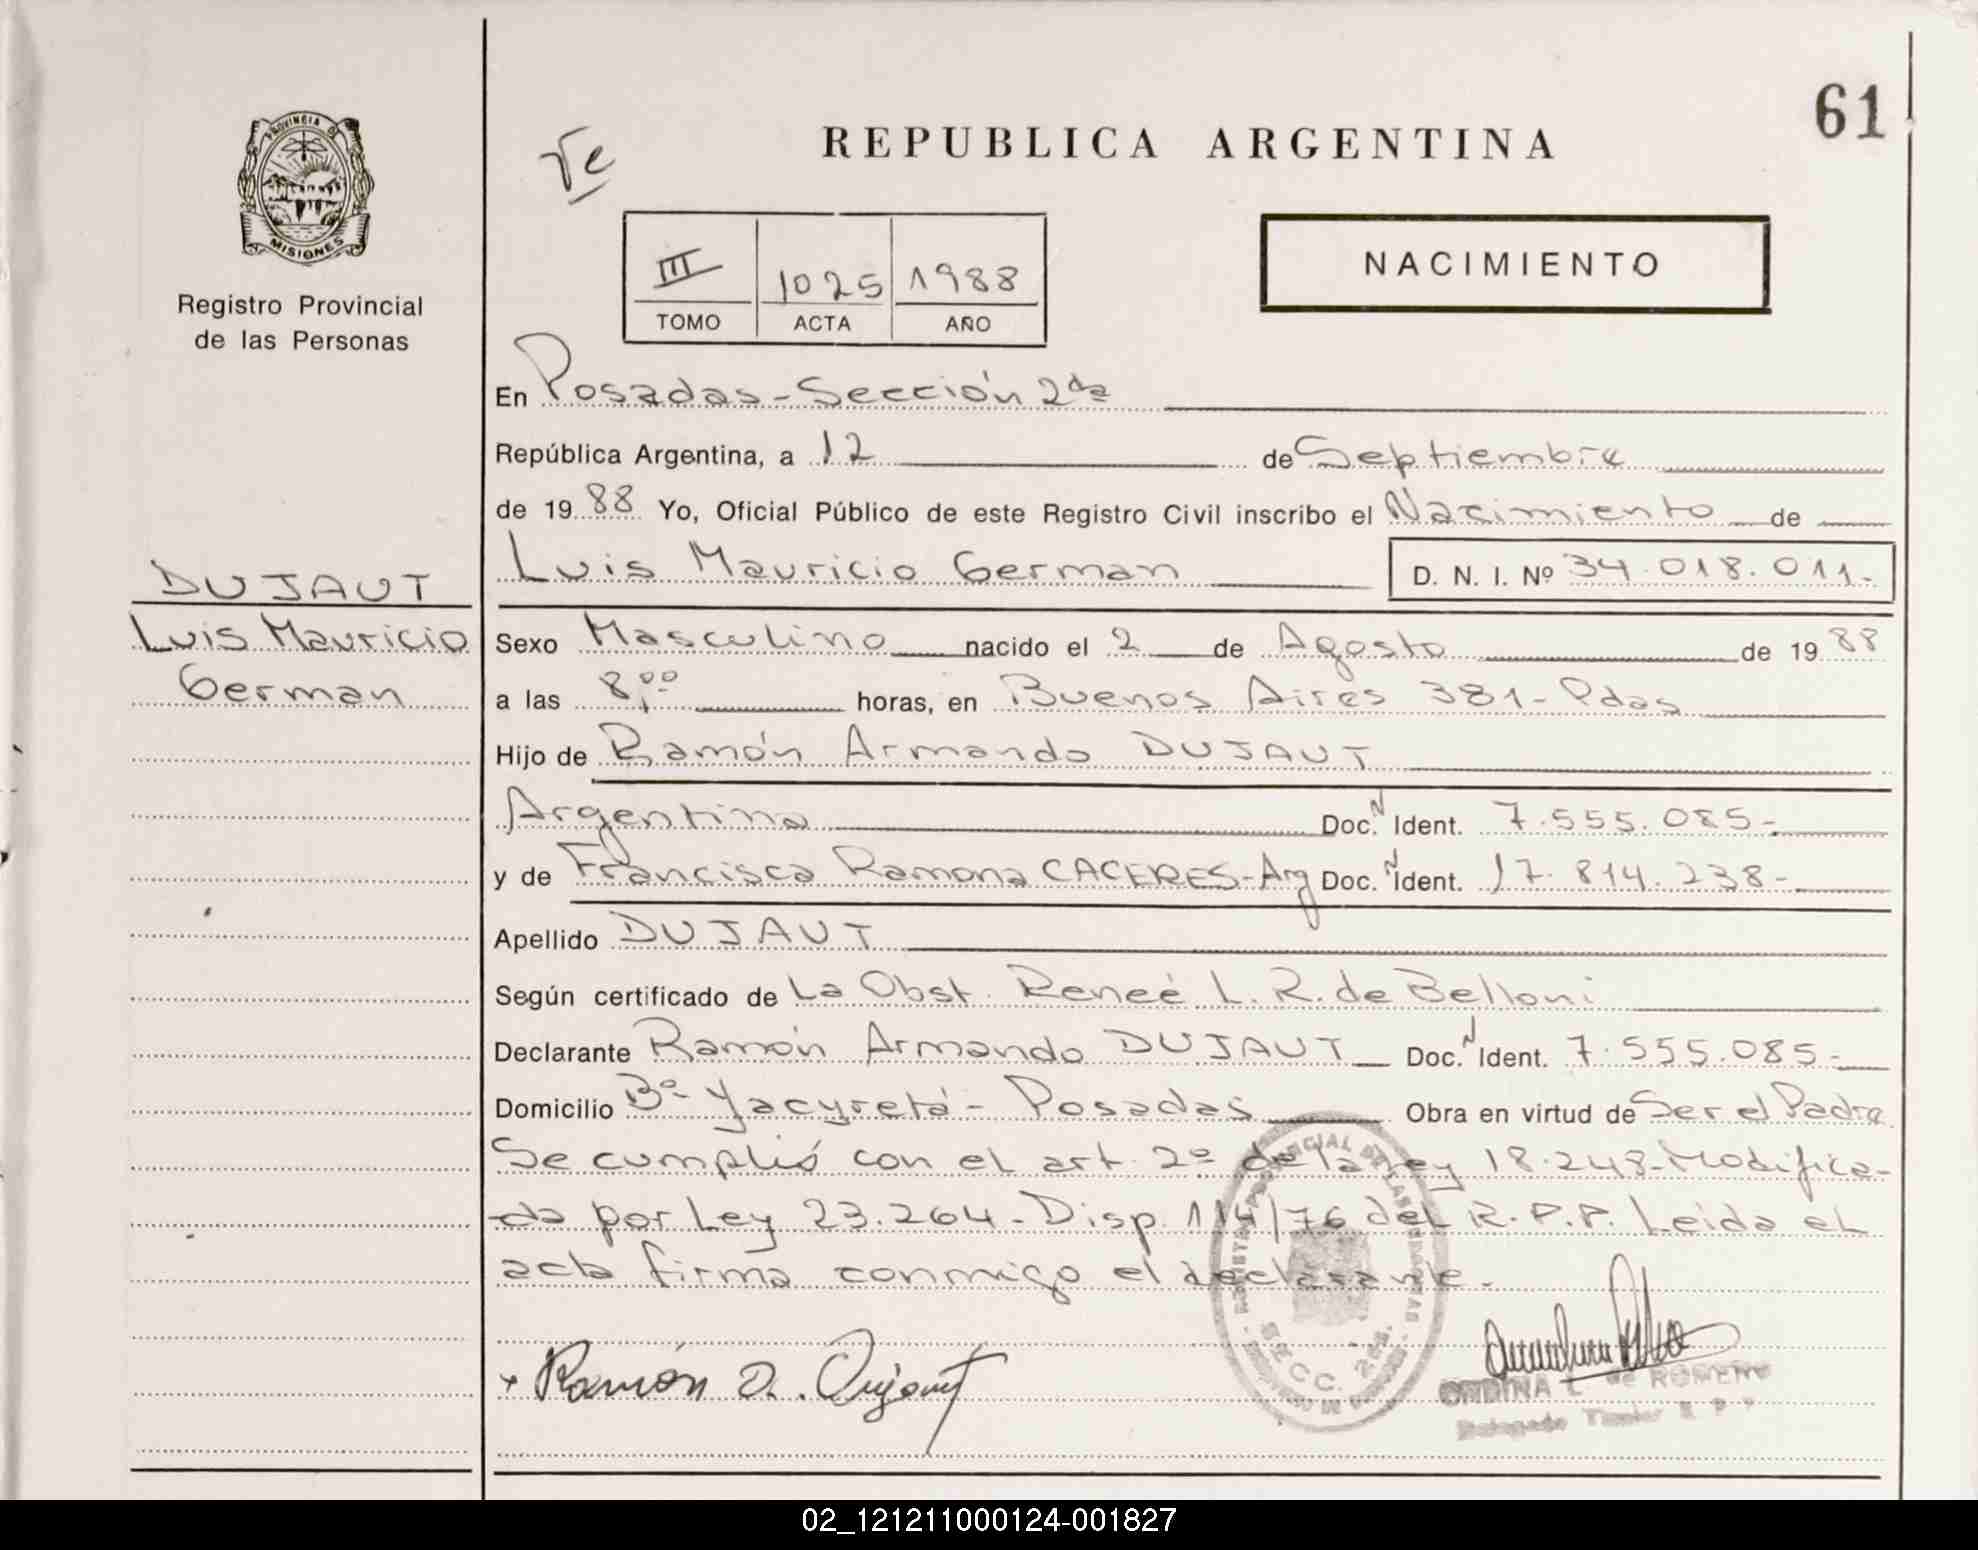 61
REPUBLICA ARGENTINA
PROVINCIA DE
MISIONES
Registro Provincial
de las Personas
NACIMIENTO
III 1025 1988
TOMO ACTA AÑO
En Posadas - Sección 2da
República Argentina, a 12 de Septiembre
de 19 88 Yo, Oficial Público de este Registro Civil inscribo el Nacimiento de
Luis Mauricio German D. N. I. Nº 34.018.011.-
DUJAUT
Luis Mauricio
German
Sexo Masculino nacido el 2 de Agosto de 19 88
a las 8,00 horas, en Buenos Aires 381 - Pdas
Hijo de Ramón Armando DUJAUT
Argentina Doc. N Ident. 7.555.085-
y de Francisca Ramona CACERES - Arg Doc. N Ident. 17.814.238-
Apellido DUJAUT
Según certificado de La Obst. Reneé L. R. de Belloni
Declarante Ramón Armando DUJAUT Doc. N Ident. 7.555.085-
Domicilio Bº Yacyretá - Posadas Obra en virtud de Ser el Padre
Se cumplió con el art. 2º de la ley 18.248 - Modifica-
da por Ley 23.264 - Disp. 114/76 del R.P.P. Leida el
acta firma conmigo el declarante.-
Ramón A. Dujaut
SECC. 2da.
L. de ROMERO
Delegado Titular R P P
02_121211000124-001827